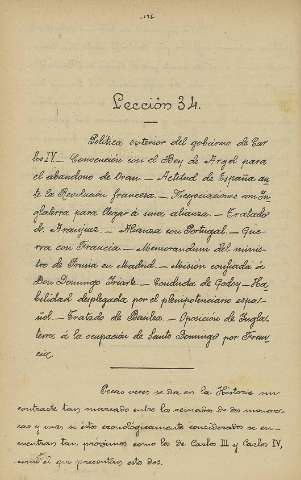 Lección 34.
Política exterior del gobierno de Car-
los IV. – Convención con el Rey de Argel para
el abandono de Oran. – Actitud de España an-
te la Revolución francesa. – Negociaciones con In-
glaterra para llegar á una alianza. – Tratado
de Aranjuez. – Alianza con Portugal. – Gue-
rra con Francia. – Memorandum del minis-
tro de Prusia en Madrid. – Misión confiada á
Don Domingo Iriarte. – Conducta de Godoy. – Ha-
bilidad desplegada por el plenipotenciario espa-
ñol. – Tratado de Basilea. – Oposición de Ingla-
terra á la ocupación de Santo Domingo por Fran-
cia.
Pocas veces se da en la Historia un
contraste tan marcado entre los reinados de dos monar-
cas y mas si éstos cronológicamente considerados se en-
cuentran tan próximos como los de Carlos III y Carlos IV,
el que presentan estos dos.